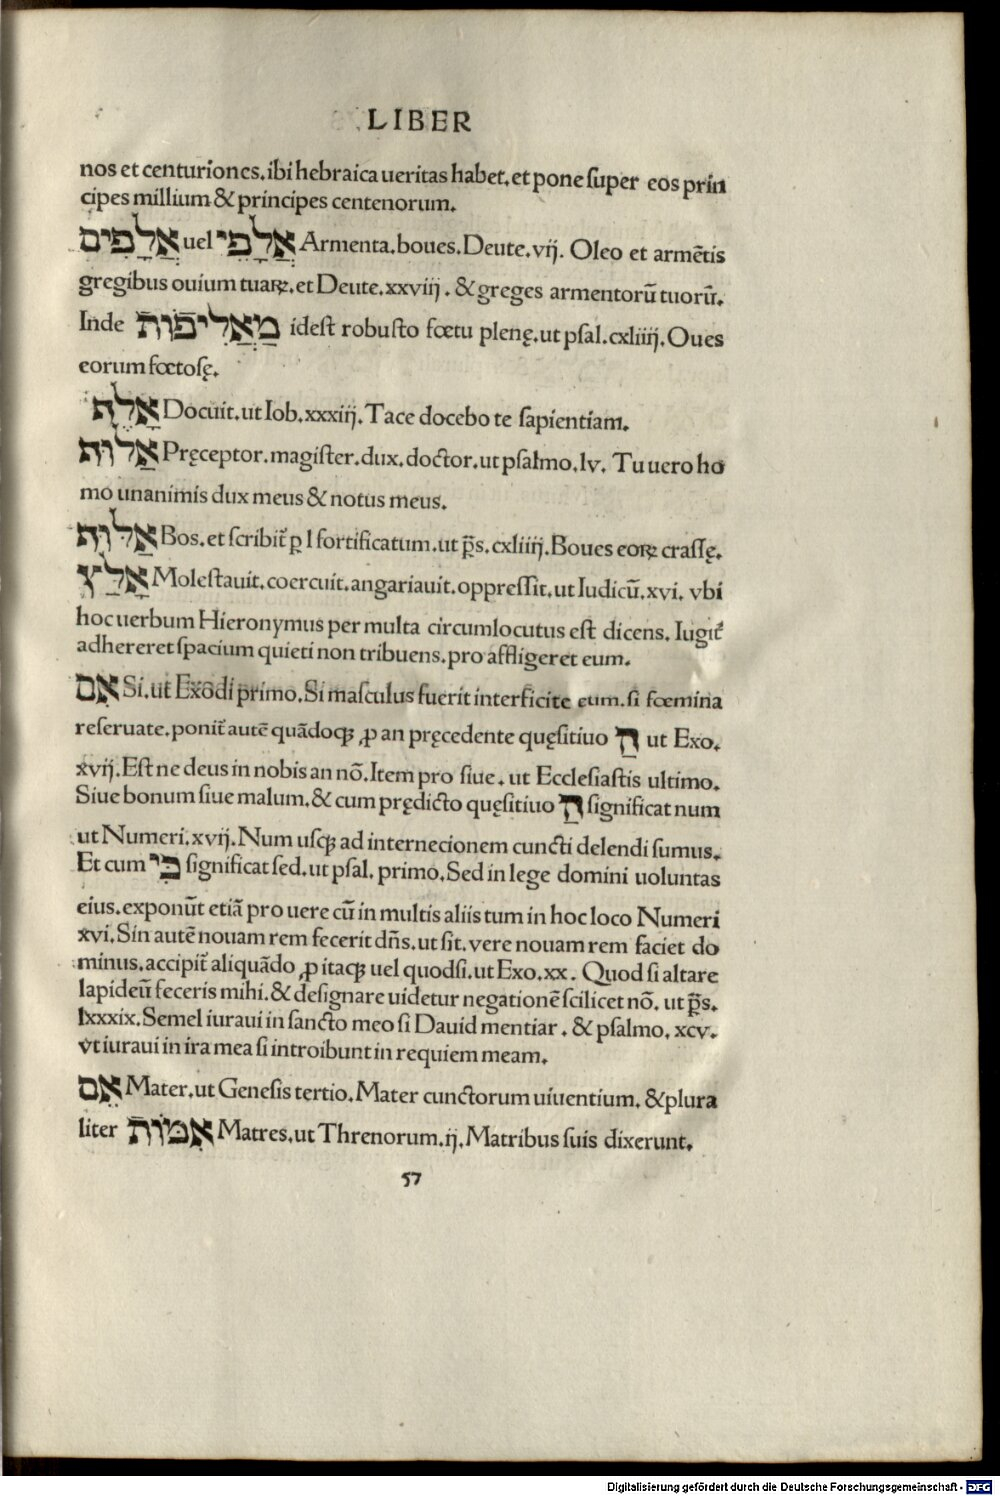 LIBER
nos et centuriones. ibi hebraica ueritas habet. et pone super eos prin
cipes millium & principes centenorum.
אֲלָפִים uel אֲלָפֵי Armenta. boues. Deute. vij. Oleo et armētis
gregibus ouium tuaꝝ. et Deute. xxviij. & greges armentorū tuorū.
Inde מַאֲלִיפוֹת idest robusto fœtu plenę. ut psal. cxliiij. Oues
eorum fœtosę.
אָלַף Docuit. ut Iob. xxxiij. Tace docebo te sapientiam.
אַלּוּף Pręceptor. magister. dux. doctor. ut psalmo. lv. Tu uero ho
mo unanimis dux meus & notus meus.
אַלּוּף Bos. et scribit᷑ ꝑ l fortificatum. ut p̄s. cxliiij. Boues eoꝝ crassę.
אָלַץ Molestauit. coercuit. angariauit. oppressit. ut Iudicū. xvi. vbi
hoc uerbum Hieronymus per multa circumlocutus est dicens. Iugit᷑
adhereret spacium quieti non tribuens. pro affligeret eum.
אִם Si. ut Exodi primo. Si masculus fuerit interficite eum. si fœmina
reseruate. ponit᷑ autē quādoqꝫ ꝓ an pręcedente quęsitiuo הַ ut Exo.
xvij. Est ne deus in nobis an nō. Item pro siue. ut Ecclesiastis ultimo.
Siue bonum siue malum. & cum prędicto quęsitiuo הַ significat num
ut Numeri. xvij. Num usqꝫ ad internecionem cuncti delendi sumus.
Et cum כִּי significat sed. ut psal. primo. Sed in lege domini uoluntas
eius. exponūt etiā pro uere cū in multis aliis tum in hoc loco Numeri
xvi. Sin autē nouam rem fecerit dn̄s. ut sit. vere nouam rem faciet do
minus. accipit᷑ aliquādo ꝓ itaqꝫ uel quodsi. ut Exo. xx. Quod si altare
lapideū feceris mihi. & designare uidetur negationē scilicet nō. ut p̄s.
lxxxix. Semel iuraui in sancto meo si Dauid mentiar. & psalmo. xcv.
vt iuraui in ira mea si introibunt in requiem meam.
אֵם Mater. ut Genesis tertio. Mater cunctorum uiuentium. & plura
liter אִמּוֹת Matres. ut Threnorum. ij. Matribus suis dixerunt.
57
Digitalisierung gefördert durch die Deutsche Forschungsgemeinschaft - DFG